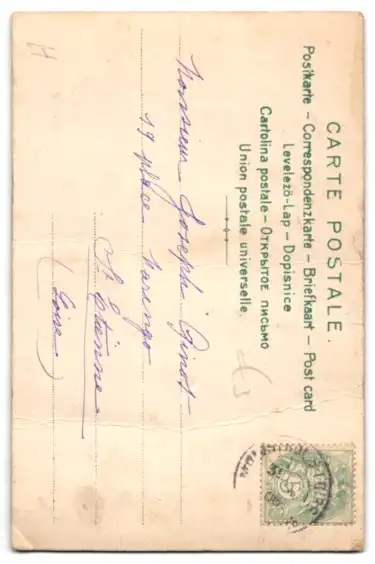 CARTE POSTALE.
Postkarte – Correspondenzkarte – Briefkaart – Post card
Levelező-Lap – Dopisnice
Cartolina postale – Открытое письмо
Union postale universelle.
Monsieur Joseph Ginot
19 place Marengo
St Etienne
(Loire)
H
5